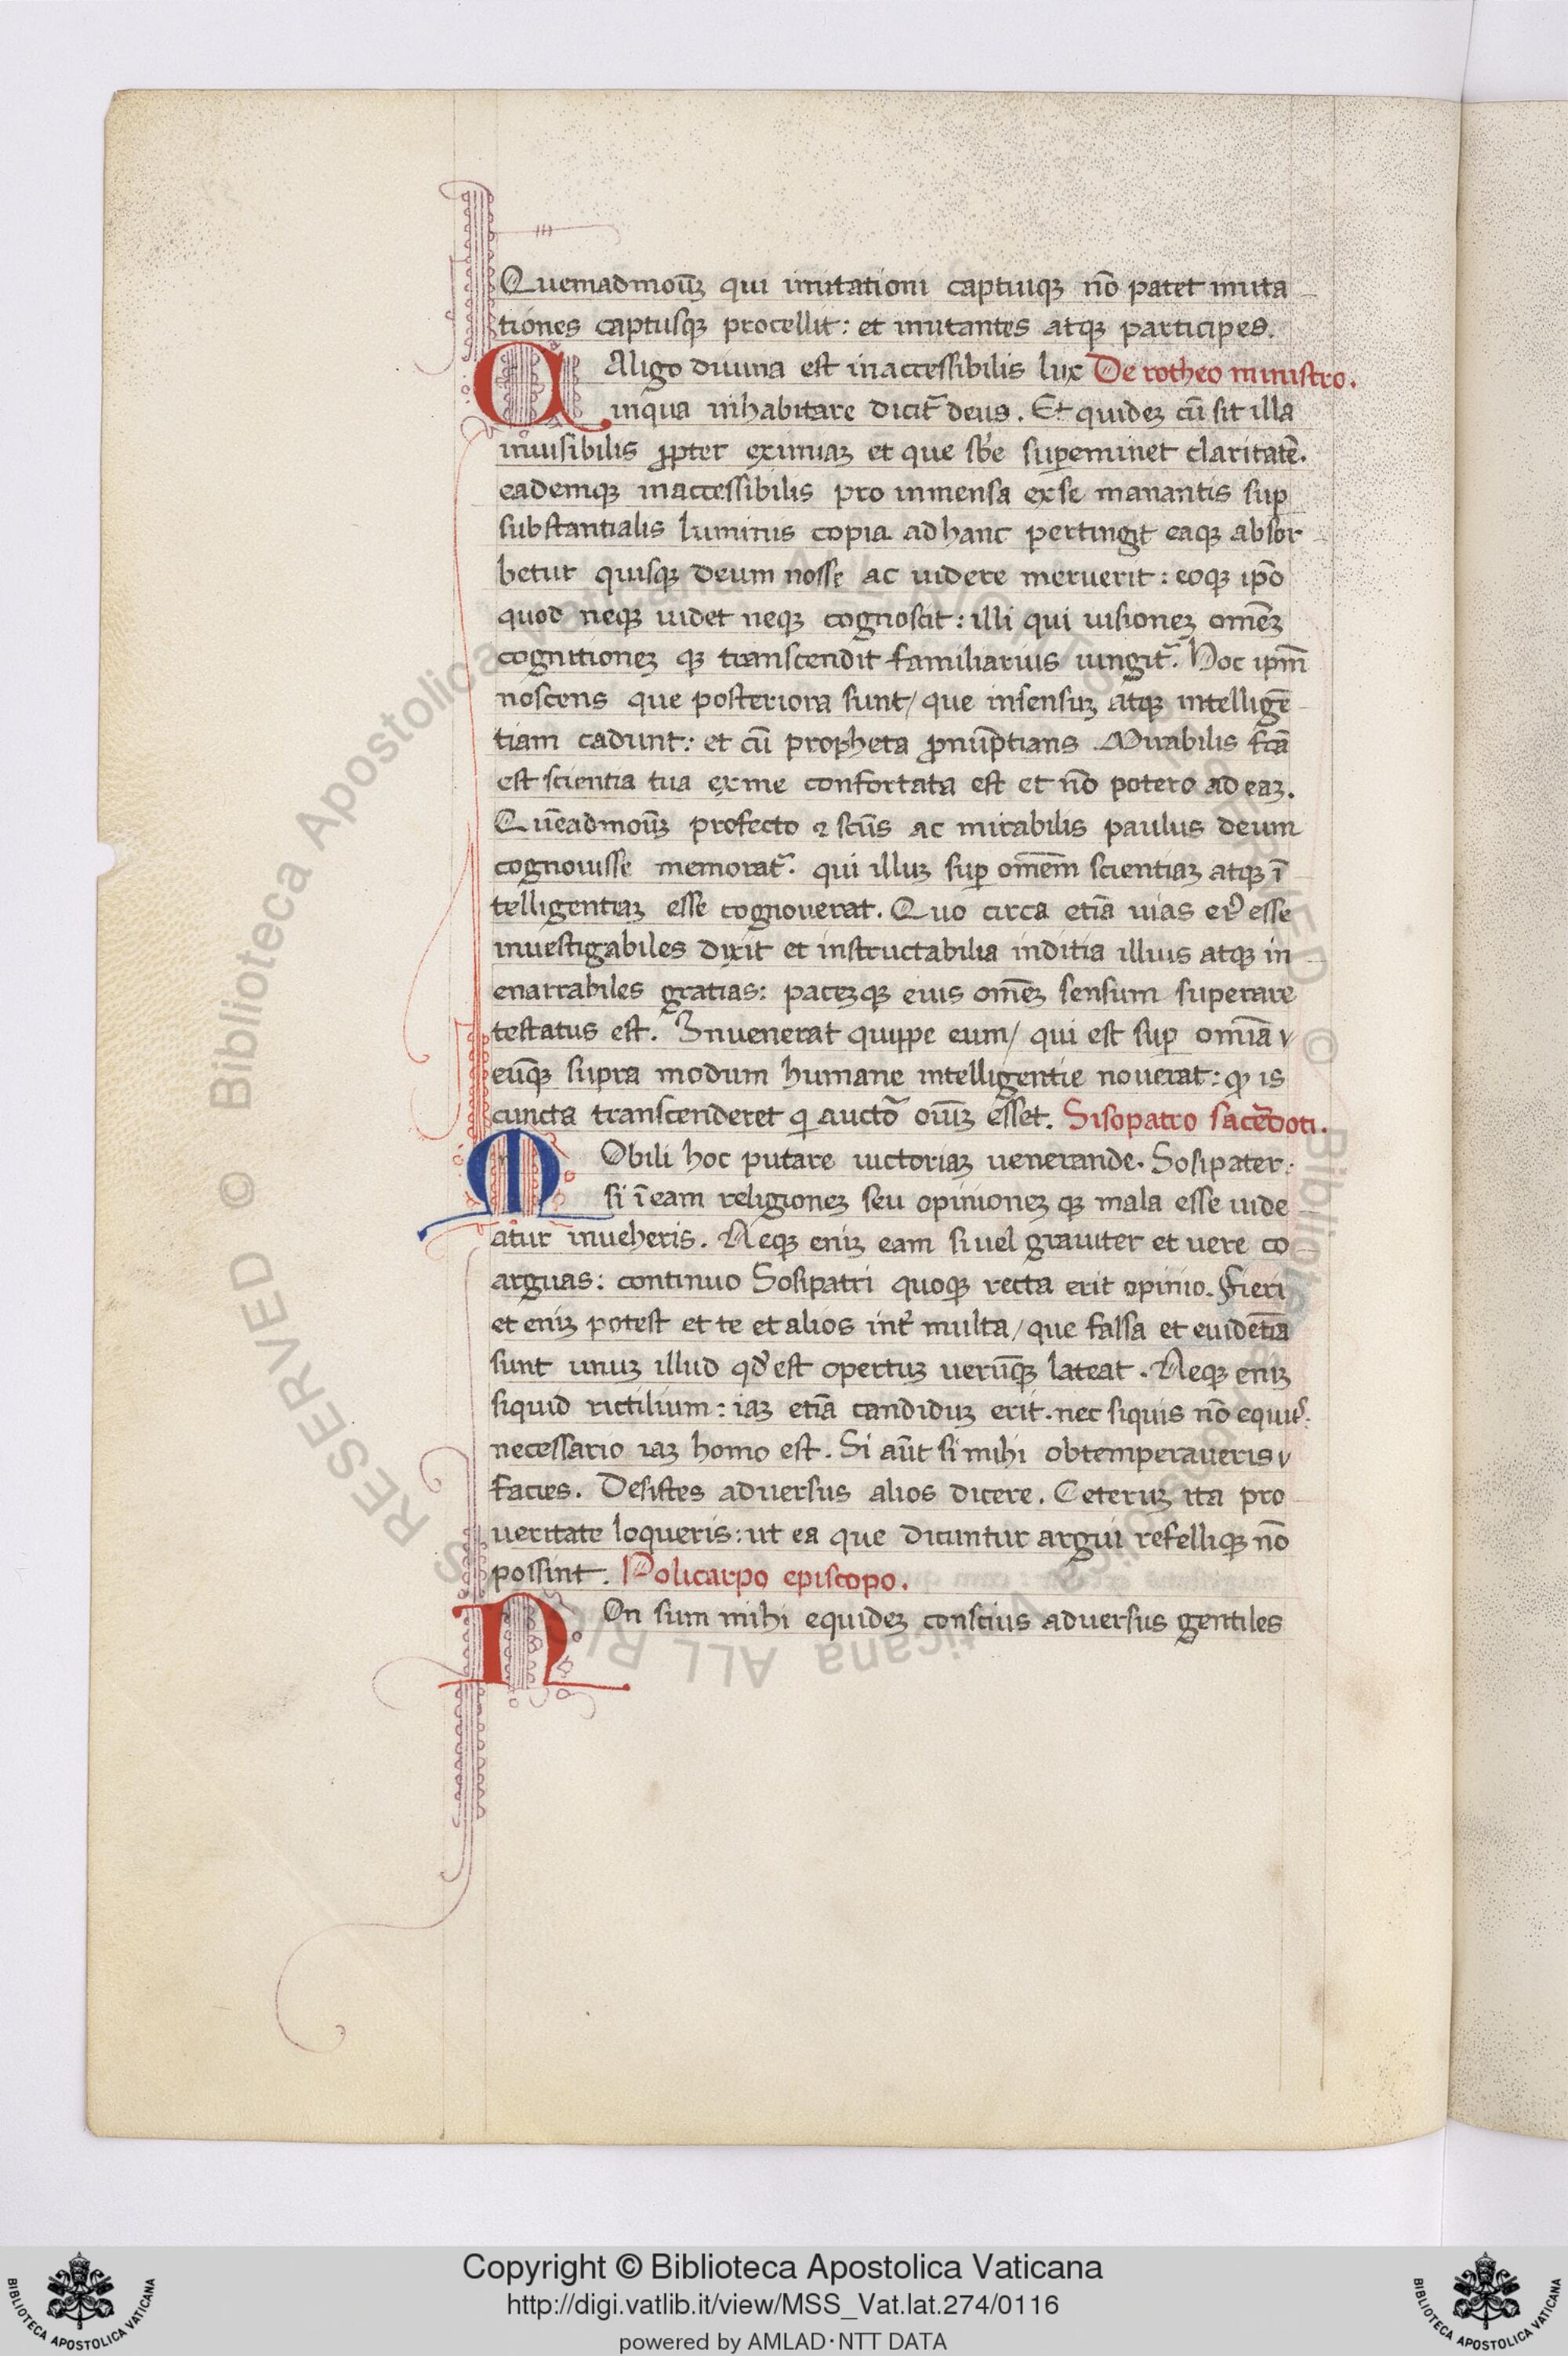 Quemadmoū₃ qui imitationi captiuiq₃ nō patet imita
tiones captusq₃ procellit: et imitantes atq₃ participes.
CAligo diuina est inaccessibilis lux De rotheo ministro.
inqua inhabitare dicit᷑ deus. Et quide₃ cū sit illa
inuisibilis ꝓpter eximia₃ et que sb̄e suꝑeminet claritatē.
eademq₃ inaccessibilis pro inmensa exse manantis suꝑ
substantialis luminis copia ad hanc pertingit eaq₃ absor
betur quisq₃ deum nosse ac uidere meruerit: eoq₃ ip̄o
quod neq₃ uidet neq₃ cognoscit: illi qui uisione₃ om̄e₃
cognitione₃ q₃ transcendit familiarius iungit᷑. Hoc ip̄m
noscens que posteriora sunt/ que insensu₃ atq₃ intelligē
tiam cadunt: et cū propheta ꝓnūptians Mirabilis fcā
est scientia tua exme confortata est et nō potero ad ea₃.
Quēadmoū₃ profecto ⁊ scūs ac mirabilis paulus deum
cognouisse memorat᷑. qui illu₃ suꝑ omēm scientia₃ atq₃ ī
telligentia₃ esse cognouerat. Quo circa etiā uias ei᷒ esse
inuestigabiles dixit et instructabilia inditia illius atq₃ in
enarrabiles gratias: pace₃q₃ eius omē₃ sensum superare
testatus est. Inuenerat quippe eum/ qui est suꝑ om̄ia v
eūq₃ supra modum humane intelligentie nouerat: ꝙ is
cuncta transcenderet qi auctō oīu₃ esset. Sisopatro sacēdoti.
NObili hoc putare uictoria₃ uenerande. Sosipater:
si īeam religione₃ seu opinione₃ q₃ mala esse uide
atur inueheris. Neq₃ eni₃ eam si uel grauiter et uere co
arguas: continuo Sosipatri quoq₃ recta erit opinio. Fieri
et eni₃ potest et te et alios int᷑ multa/ que falsa et euidētia
sunt unu₃ illud qd̓ est opertu₃ uerūq₃ lateat. Neq₃ eni₃
siquid rictilium: ia₃ etiā candidu₃ erit. nec siquis nō equus:
necessario ia₃ homo est. Si aūt si mihi obtemperaueris v
facies. Desistes aduersus alios dicere. Ceteru₃ ita pro
ueritate loqueris: ut ea que dicuntur argui refelliq₃ nō
possint. Policarpo episcopo.
NOn sum mihi equide₃ conscius aduersus gentiles
© Biblioteca Apostolica Vaticana ALL RIGHTS RESERVED
Copyright © Biblioteca Apostolica Vaticana
http://digi.vatlib.it/view/MSS_Vat.lat.274/0116
powered by AMLAD·NTT DATA
BIBLIOTECA APOSTOLICA VATICANA
BIBLIOTECA APOSTOLICA VATICANA